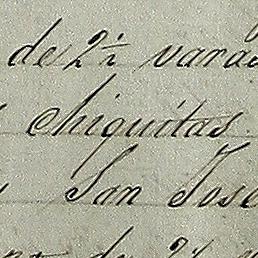 de 2½ varas
chiquitas.
San José
de 2½